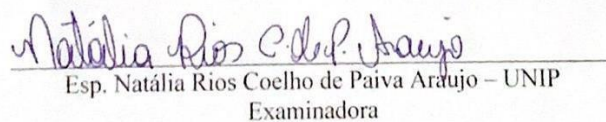 Natália Rios C. de P. Araujo
Esp. Natália Rios Coelho de Paiva Araujo – UNIP
Examinadora